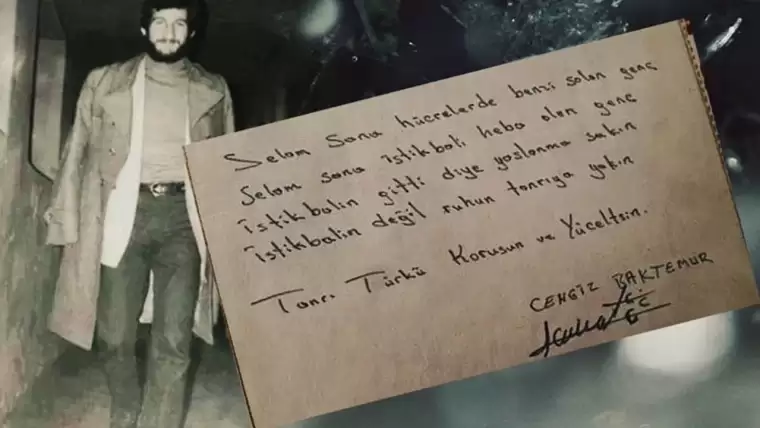 Selam sana hücrelerde benzi solan genç
Selam sana istikbali heba olan genç
İstikbalin gitti diye yaslanma sakın
İstikbalin değil ruhun tanrıya yakın
Tanrı Türkü Korusun ve Yüceltsin.
CENGİZ BAKTEMUR